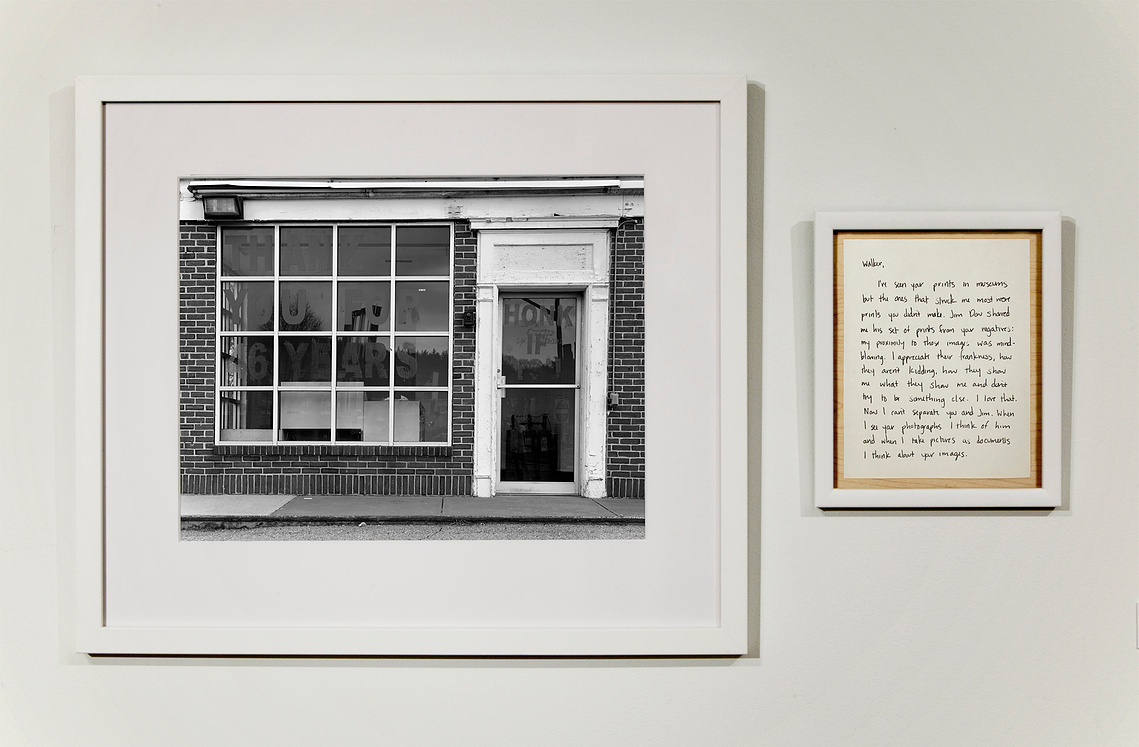 THANK
YOU FOR
6 YEARS
HONK
IF
Walker,
I've seen your prints in museums
but the ones that struck me most were
prints you didn't make. Jim Dow showed
me his set of prints from your negatives:
my proximity to those images was mind-
blowing. I appreciate their frankness, how
they aren't kidding, how they show
me what they show me and don't
try to be something else. I love that.
Now I can't separate you and Jim. When
I see your photographs I think of him
and when I take pictures as documents
I think about your images.